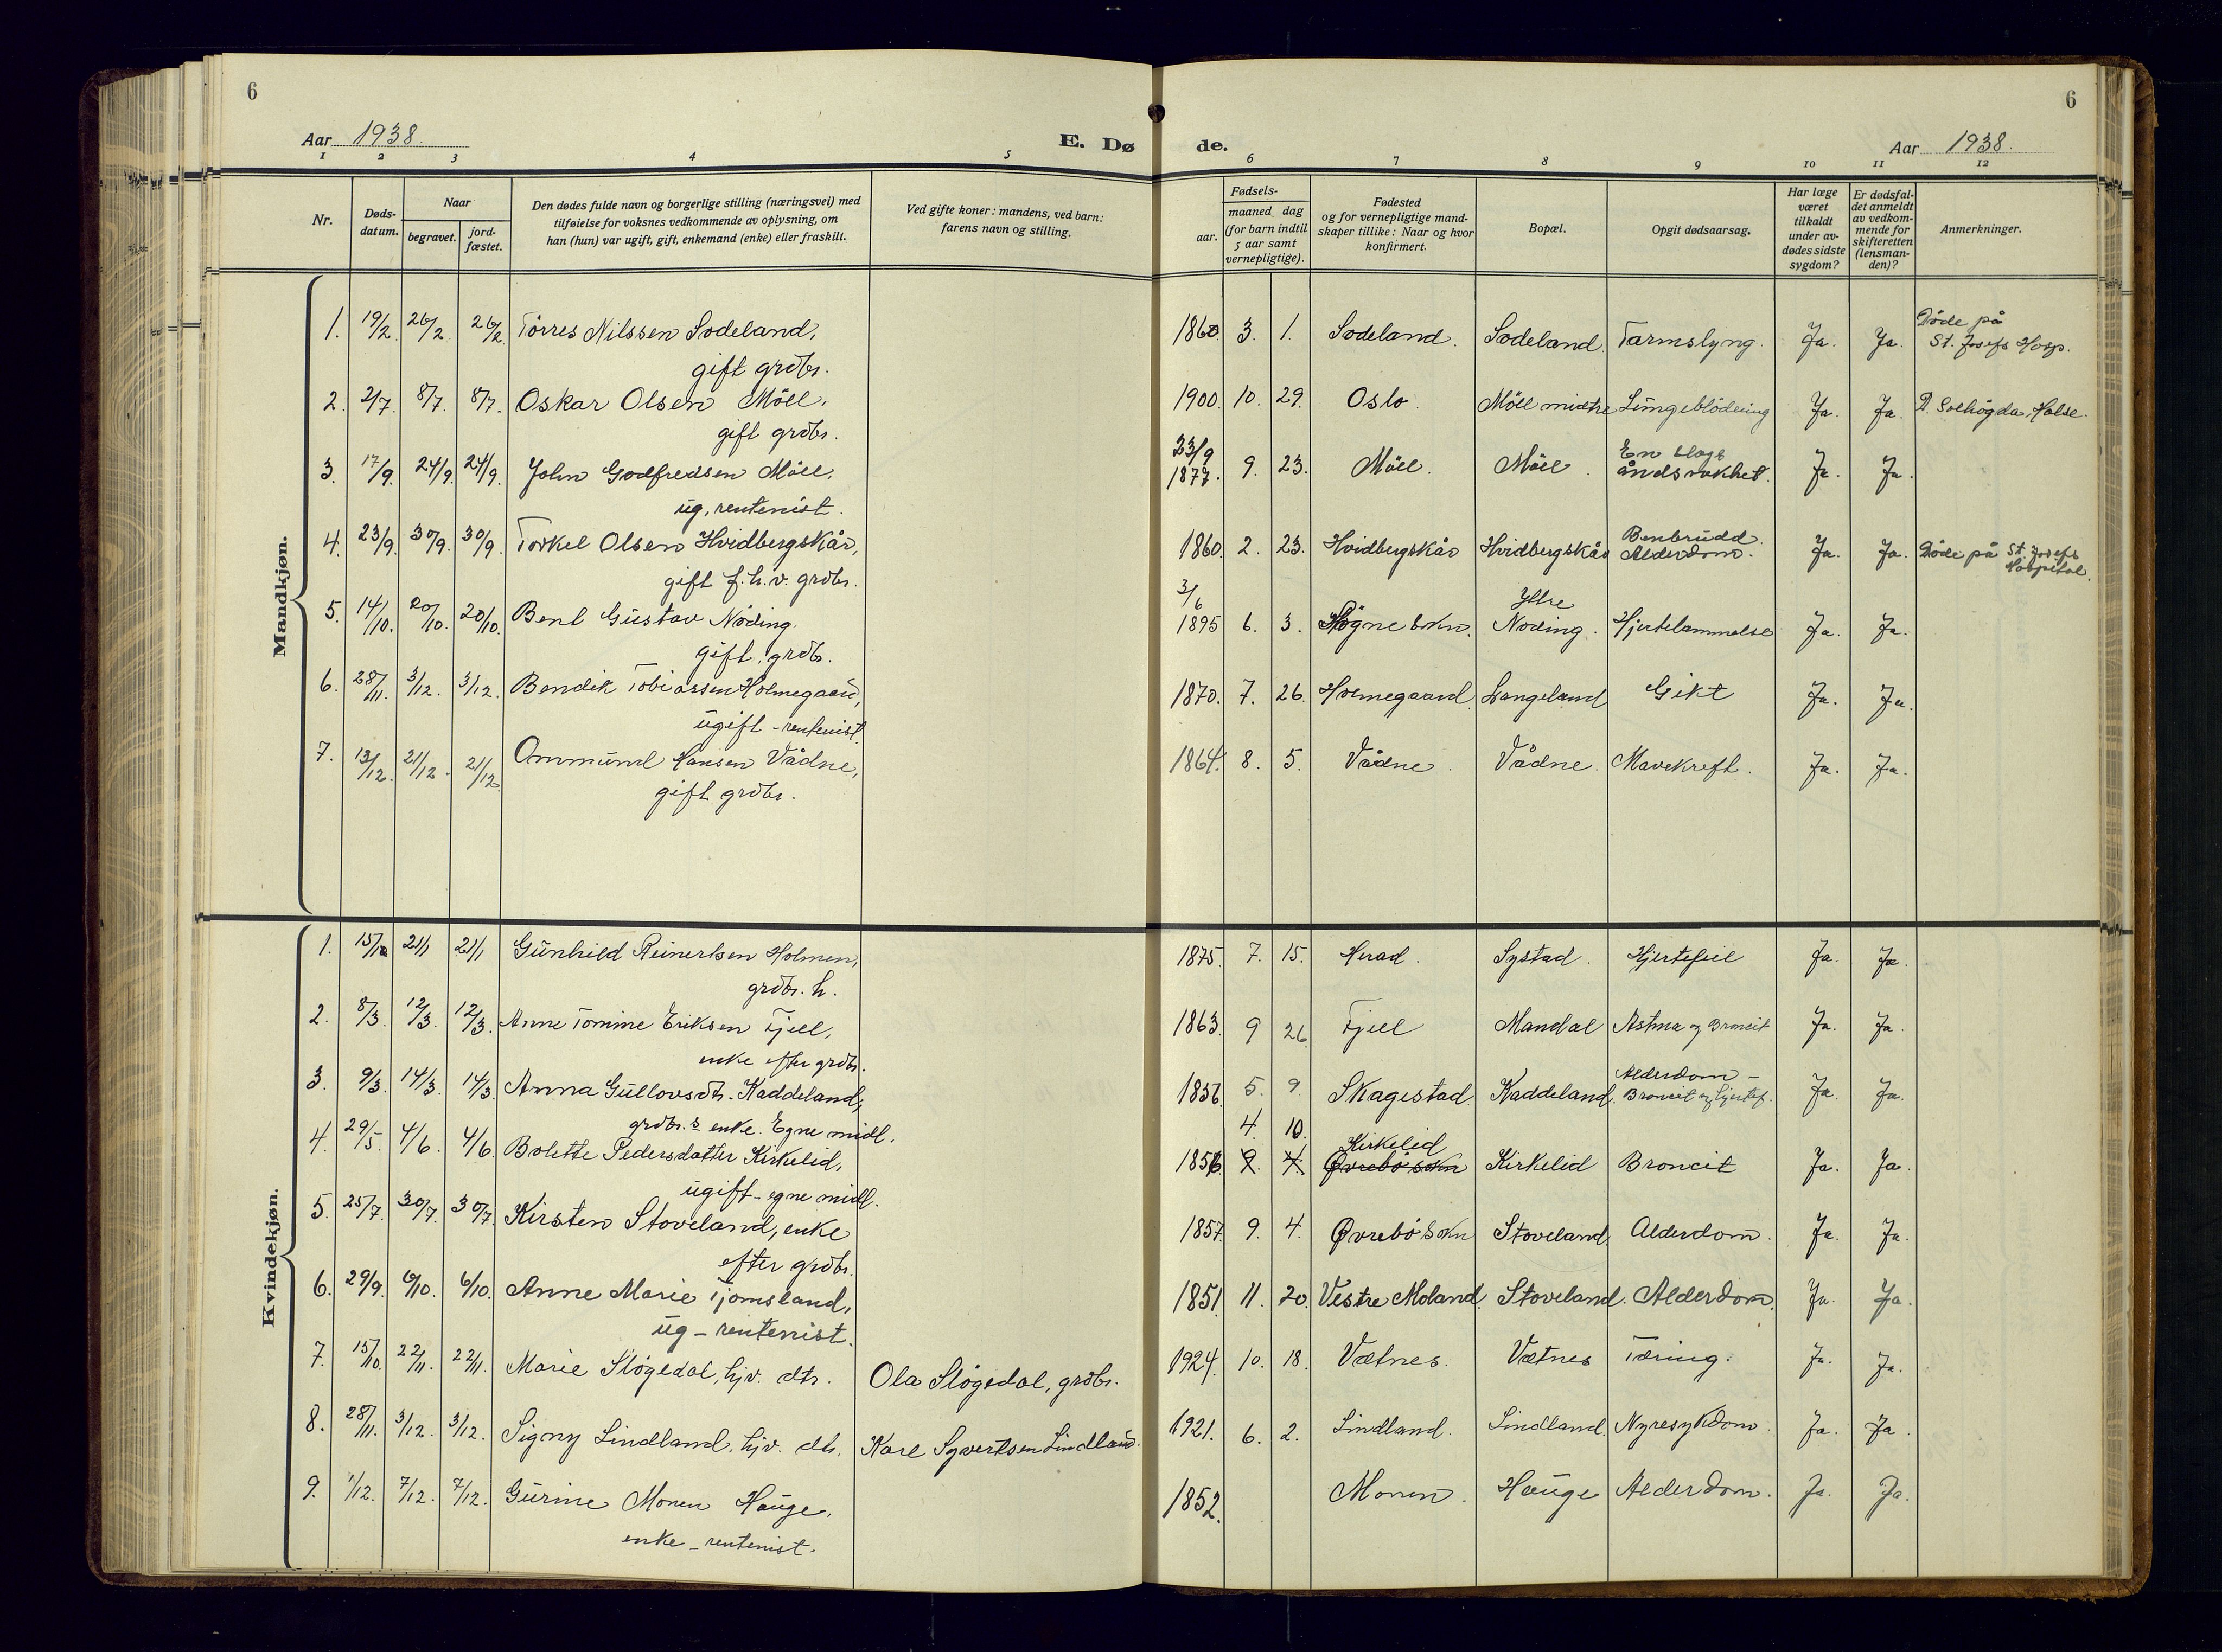 6
6
Aar 1938.
E. Dø de.
Aar 1938.
1 2 3 4 5 6 7 8 9 10 11 12
Nr.
Døds-
datum.
Naar
begravet.
jord-
fæstet.
Den dødes fulde navn og borgerlige stilling (næringsvei) med
tilføielse for voksnes vedkommende av oplysning, om
han (hun) var ugift, gift, enkemand (enke) eller fraskilt.
Ved gifte koner: mandens, ved barn:
farens navn og stilling.
Fødsels-
aar.
maaned dag
(for barn indtil
5 aar samt
vernepligtige).
Fødested
og for vernepligtige mand-
skaper tillike: Naar og hvor
konfirmert.
Bopæl.
Opgit dødsaarsag.
Har læge
været
tilkaldt
under av-
dødes sidste
sygdom?
Er dødsfal-
det anmeldt
av vedkom-
mende for
skifteretten
(lensman-
den)?
Anmerkninger.
Mandkjøn.
1. 19/2. 26/2. 26/2. Törres Nilssen Sodeland, 1860. 3. 1. Sodeland. Sodeland. Tarmslyng. Ja. Ja. Döde på
St. Josefs Hosp.
gift grdbr.
2. 2/7. 8/7. 8/7. Oskar Olsen Möll, 1900. 10. 29. Oslo. Möll midtre Lungeblödning Ja. Ja. D. Solhögda, Halse.
gift grdbr.
3. 17/9. 24/9. 24/9. John Godfredsen Möll, 23/9 1877. 9. 23. Möll. Möll. En slags
åndsvakhet. Ja. Ja.
ug, rentenist.
4. 23/9. 30/9. 30/9. Torkel Olsen Hvidbergskår, 1860. 2. 23. Hvidbergskår Hvidbergskår Benbrudd.
Alderdom. Ja. Ja. Döde på St. Josefs
Hospital.
gift f.h.v. grdbr.
5. 14/10. 20/10. 20/10. Bent Gustav Nöding. 3/6 1895 6. 3. Högne sokn. Ytre
Nöding. Hjertelammelse Ja. Ja.
gift, grdbr.
6. 28/11. 3/12. 3/12. Bendik Tobiassen Holmegaard, 1870. 7. 26. Holmegaard Langeland Gikt Ja. Ja.
ugift - rentenist.
7. 13/12. 21/12. 21/12. Ommund Hansen Vådne, 1864. 8. 5. Vådne. Vådne. Mavekreft. Ja. Ja.
gift grdbr.
Kvindekjøn.
1. 21/1 21/1 Gunhild Reinertsen Holmen, 1875. 7. 15. Herad. Systad. Hjertefeil Ja. Ja.
grdbr. h.
2. 8/3. 12/3. 12/3. Anne Tomine Eriksen Fjell, 1863. 9 26. Fjell Mandal Astma og Broncit Ja. Ja.
enke efter grdbr.
3. 9/3. 14/3. 14/3. Anna Gullovsdtr. Kaddeland, 1856. 5. 9 Skagestad. Kaddeland. Alderdom -
Broncit og hjertef. Ja. Ja.
grdbr.s enke. Egne midl.
4. 29/5. 4/6. 4/6. Bolette Pedersdatter Kirkelid, 1856 4. 10. 9. 4. Kirkelid
Øvrebö sokn Kirkelid Broncit Ja. Ja.
ugift - egne midl.
5. 25/7. 30/7. 30/7. Kirsten Stoveland, enke 1857. 9. 4. Øvrebö sokn Stoveland. Alderdom. Ja. Ja.
efter grdbr.
6. 29/9. 6/10. 6/10. Anne Marie Tjomsland, 1851. 11. 20. Vestre Moland. Stoveland. Alderdom. Ja. Ja.
ug - rentenist.
7. 15/10. 22/11. 22/11. Marie Slögedal, hjv. dtr. Ola Slögedal, grdbr. 1924. 10. 18. Vatnes. Vatnes Tæring. Ja. Ja.
8. 28/11. 3/12. 3/12. Signy Lindland, hjv. dtr. Karl Syvertsen Lindland. 1921. 6. 2. Lindland. Lindland. Nyresykdom. Ja. Ja
9. 1/12. 7/12. 7/12. Gurine Monen Hauge, 1852. Monen. Hauge Alderdom. Ja. Ja.
enke - rentenist.